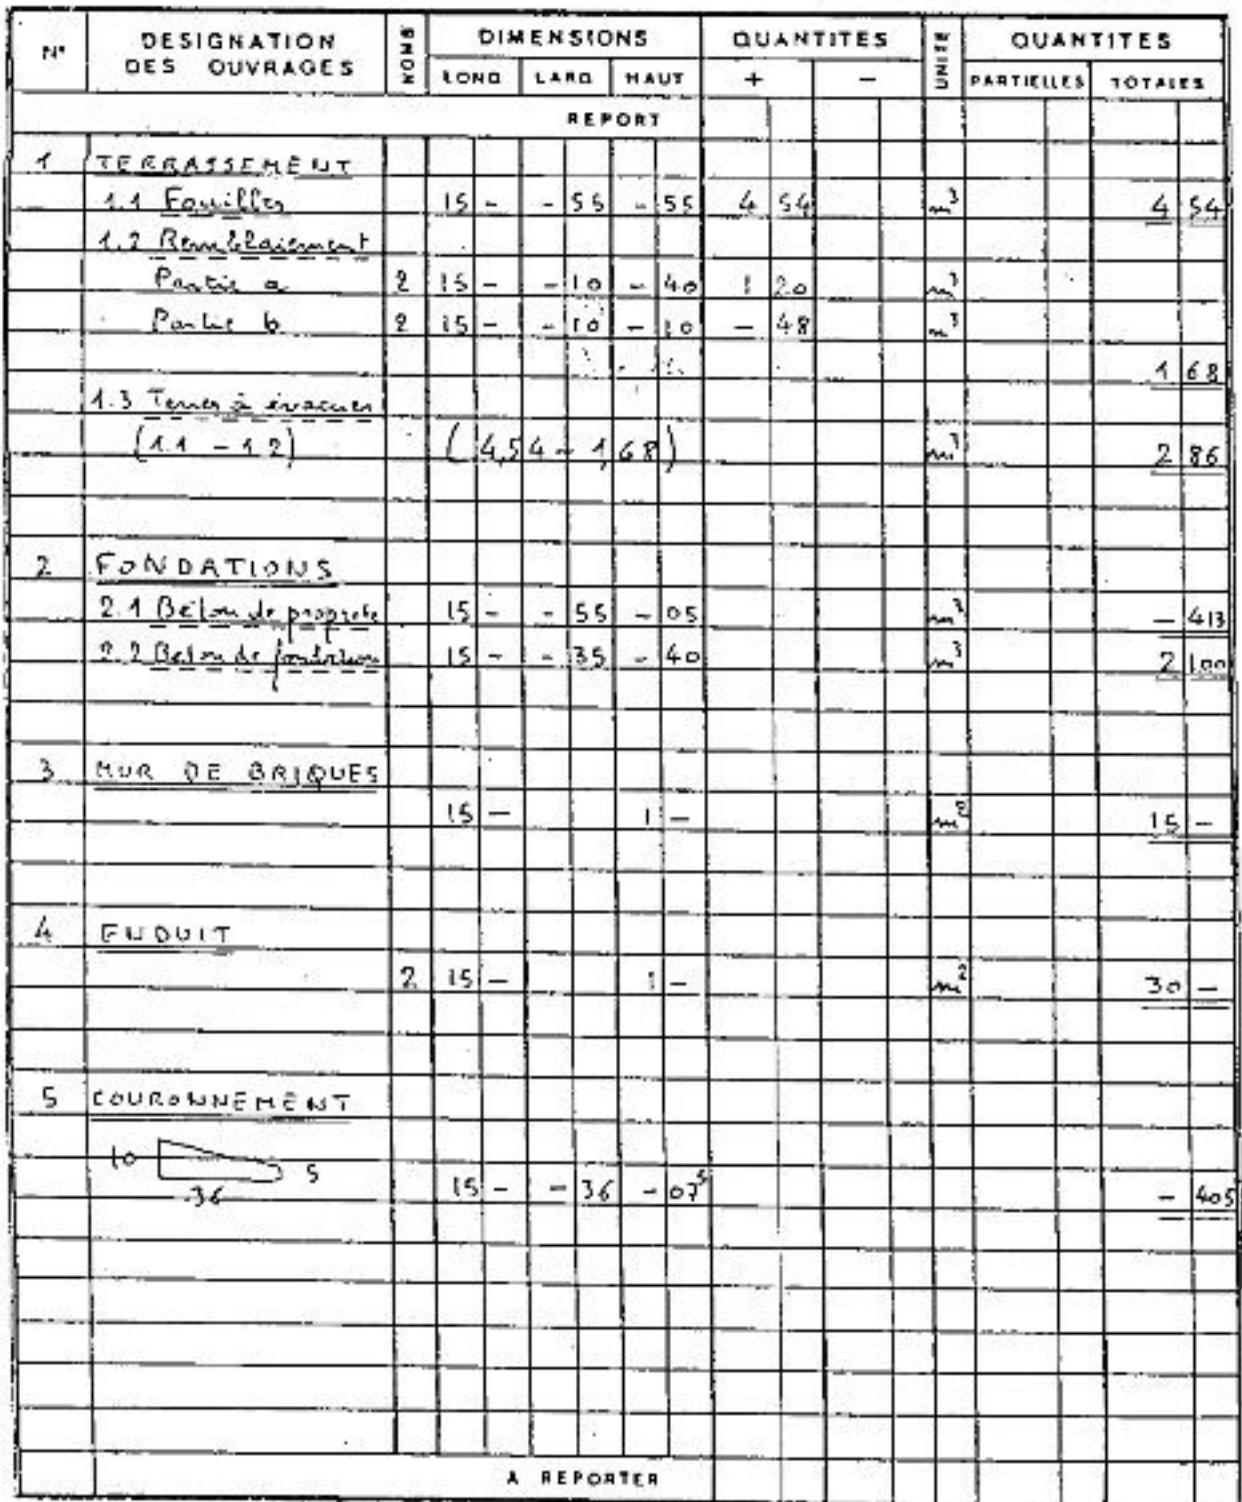 N° DESIGNATION DES OUVRAGES NOMB DIMENSIONS QUANTITES UNITE QUANTITES
LONG LARG HAUT + - PARTIELLES TOTALES
REPORT
1 TERRASSEMENT
1.1 Fouilles 15 - - 55 - 55 4 54 m³ 4 54
1.2 Remblaiement
Partie a 2 15 - - 10 - 40 1 20 m³
Partie b 2 15 - - 10 - 10 - 48 m³
1 68
1.3 Terres à évacuer
(1.1 - 1.2) (4,54 - 1,68) m³ 2 86
2 FONDATIONS
2.1 Béton de propreté 15 - - 55 - 05 m³ - 413
2.2 Béton de fondation 15 - - 35 - 40 m³ 2 100
3 MUR DE BRIQUES
15 - 1 - m² 15 -
4 ENDUIT
2 15 - 1 - m² 30 -
5 COURONNEMENT
10 5
36 15 - - 36 - 07⁵ - 405
A REPORTER